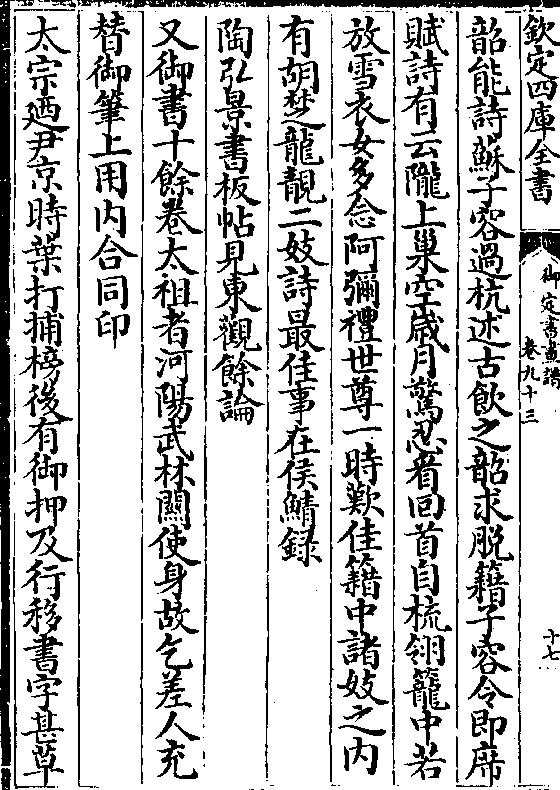 欽定四庫全書
御定書畫譜
卷九十三
十七
韶能詩蘇子容過杭述古飲之韶求脱籍子容令即席
賦詩有云隴上巢空嵗月驚忍看回首自梳翎籠中若
放雪衣女多念阿彌禮世尊一時歎佳籍中諸妓之内
有胡楚龍靚二妓詩最佳事在侯鯖録
陶弘景書板帖見東觀餘論
又御書十餘卷太祖者河陽武林闗使身故乞差人充
替御筆上用内合同印
太宗廼尹京時葉打捕榜後有御押及行移書字甚草